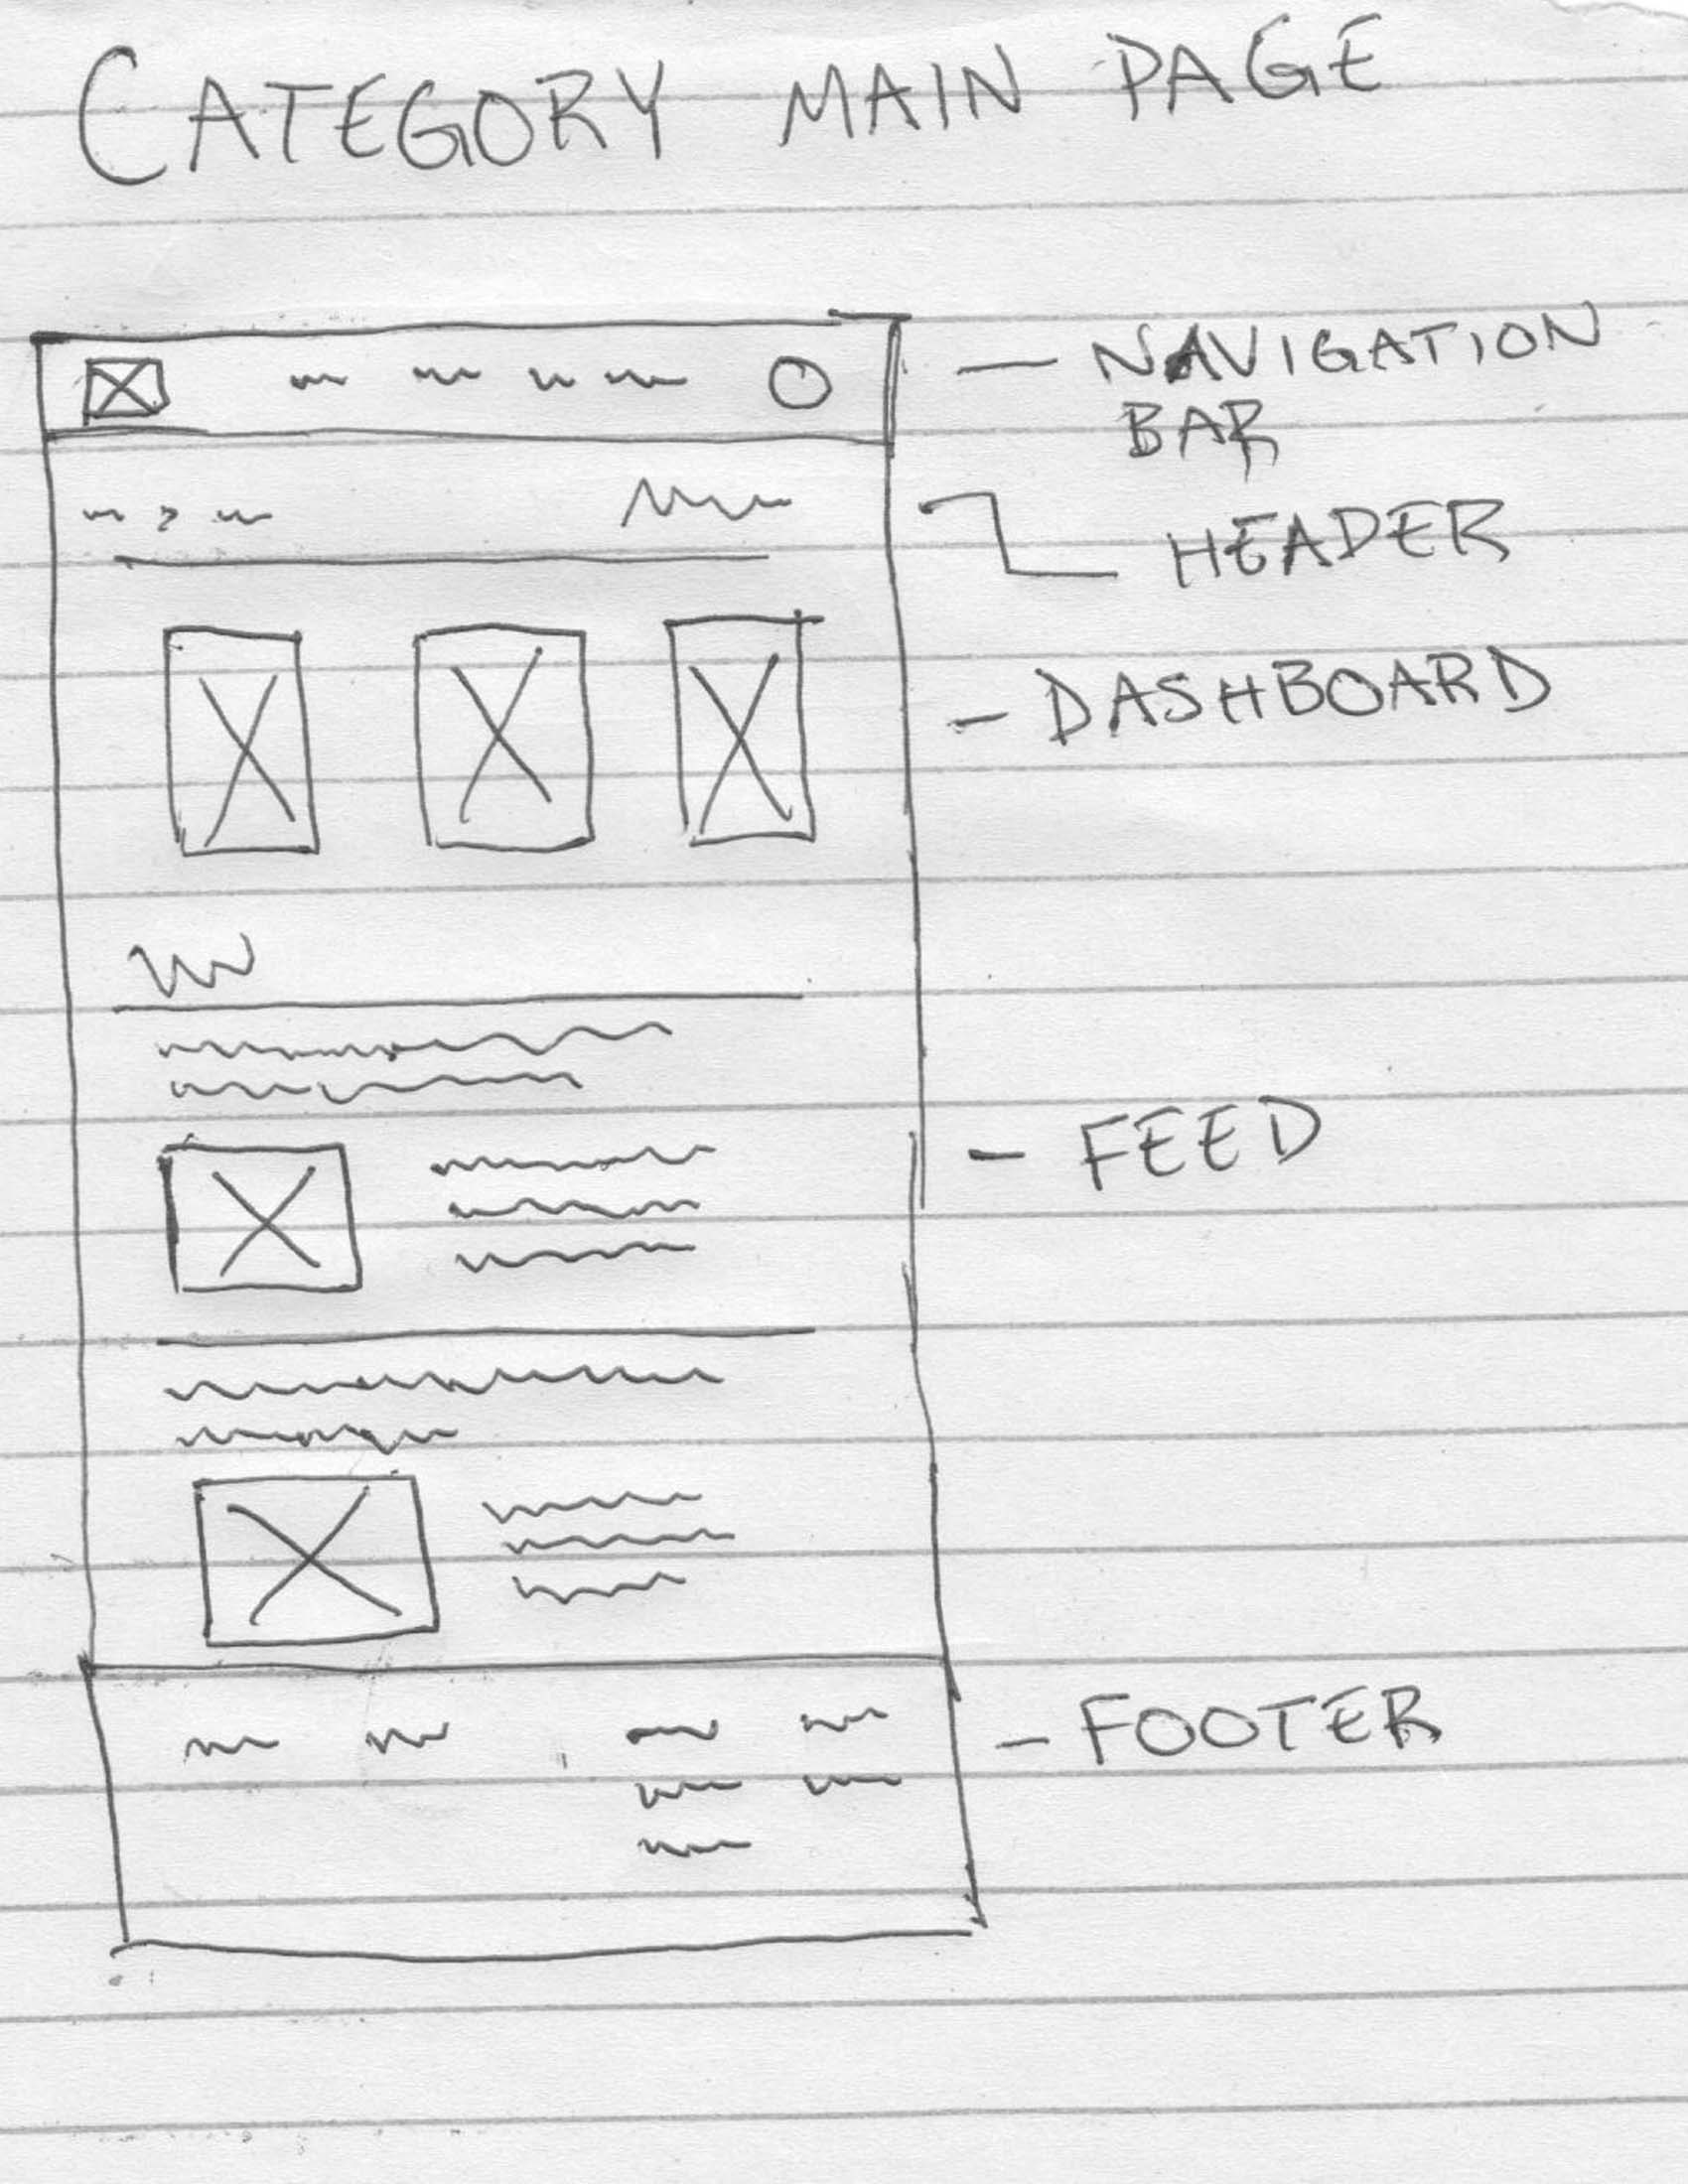 CATEGORY MAIN PAGE
— NAVIGATION
BAR
HEADER
- DASHBOARD
- FEED
- FOOTER